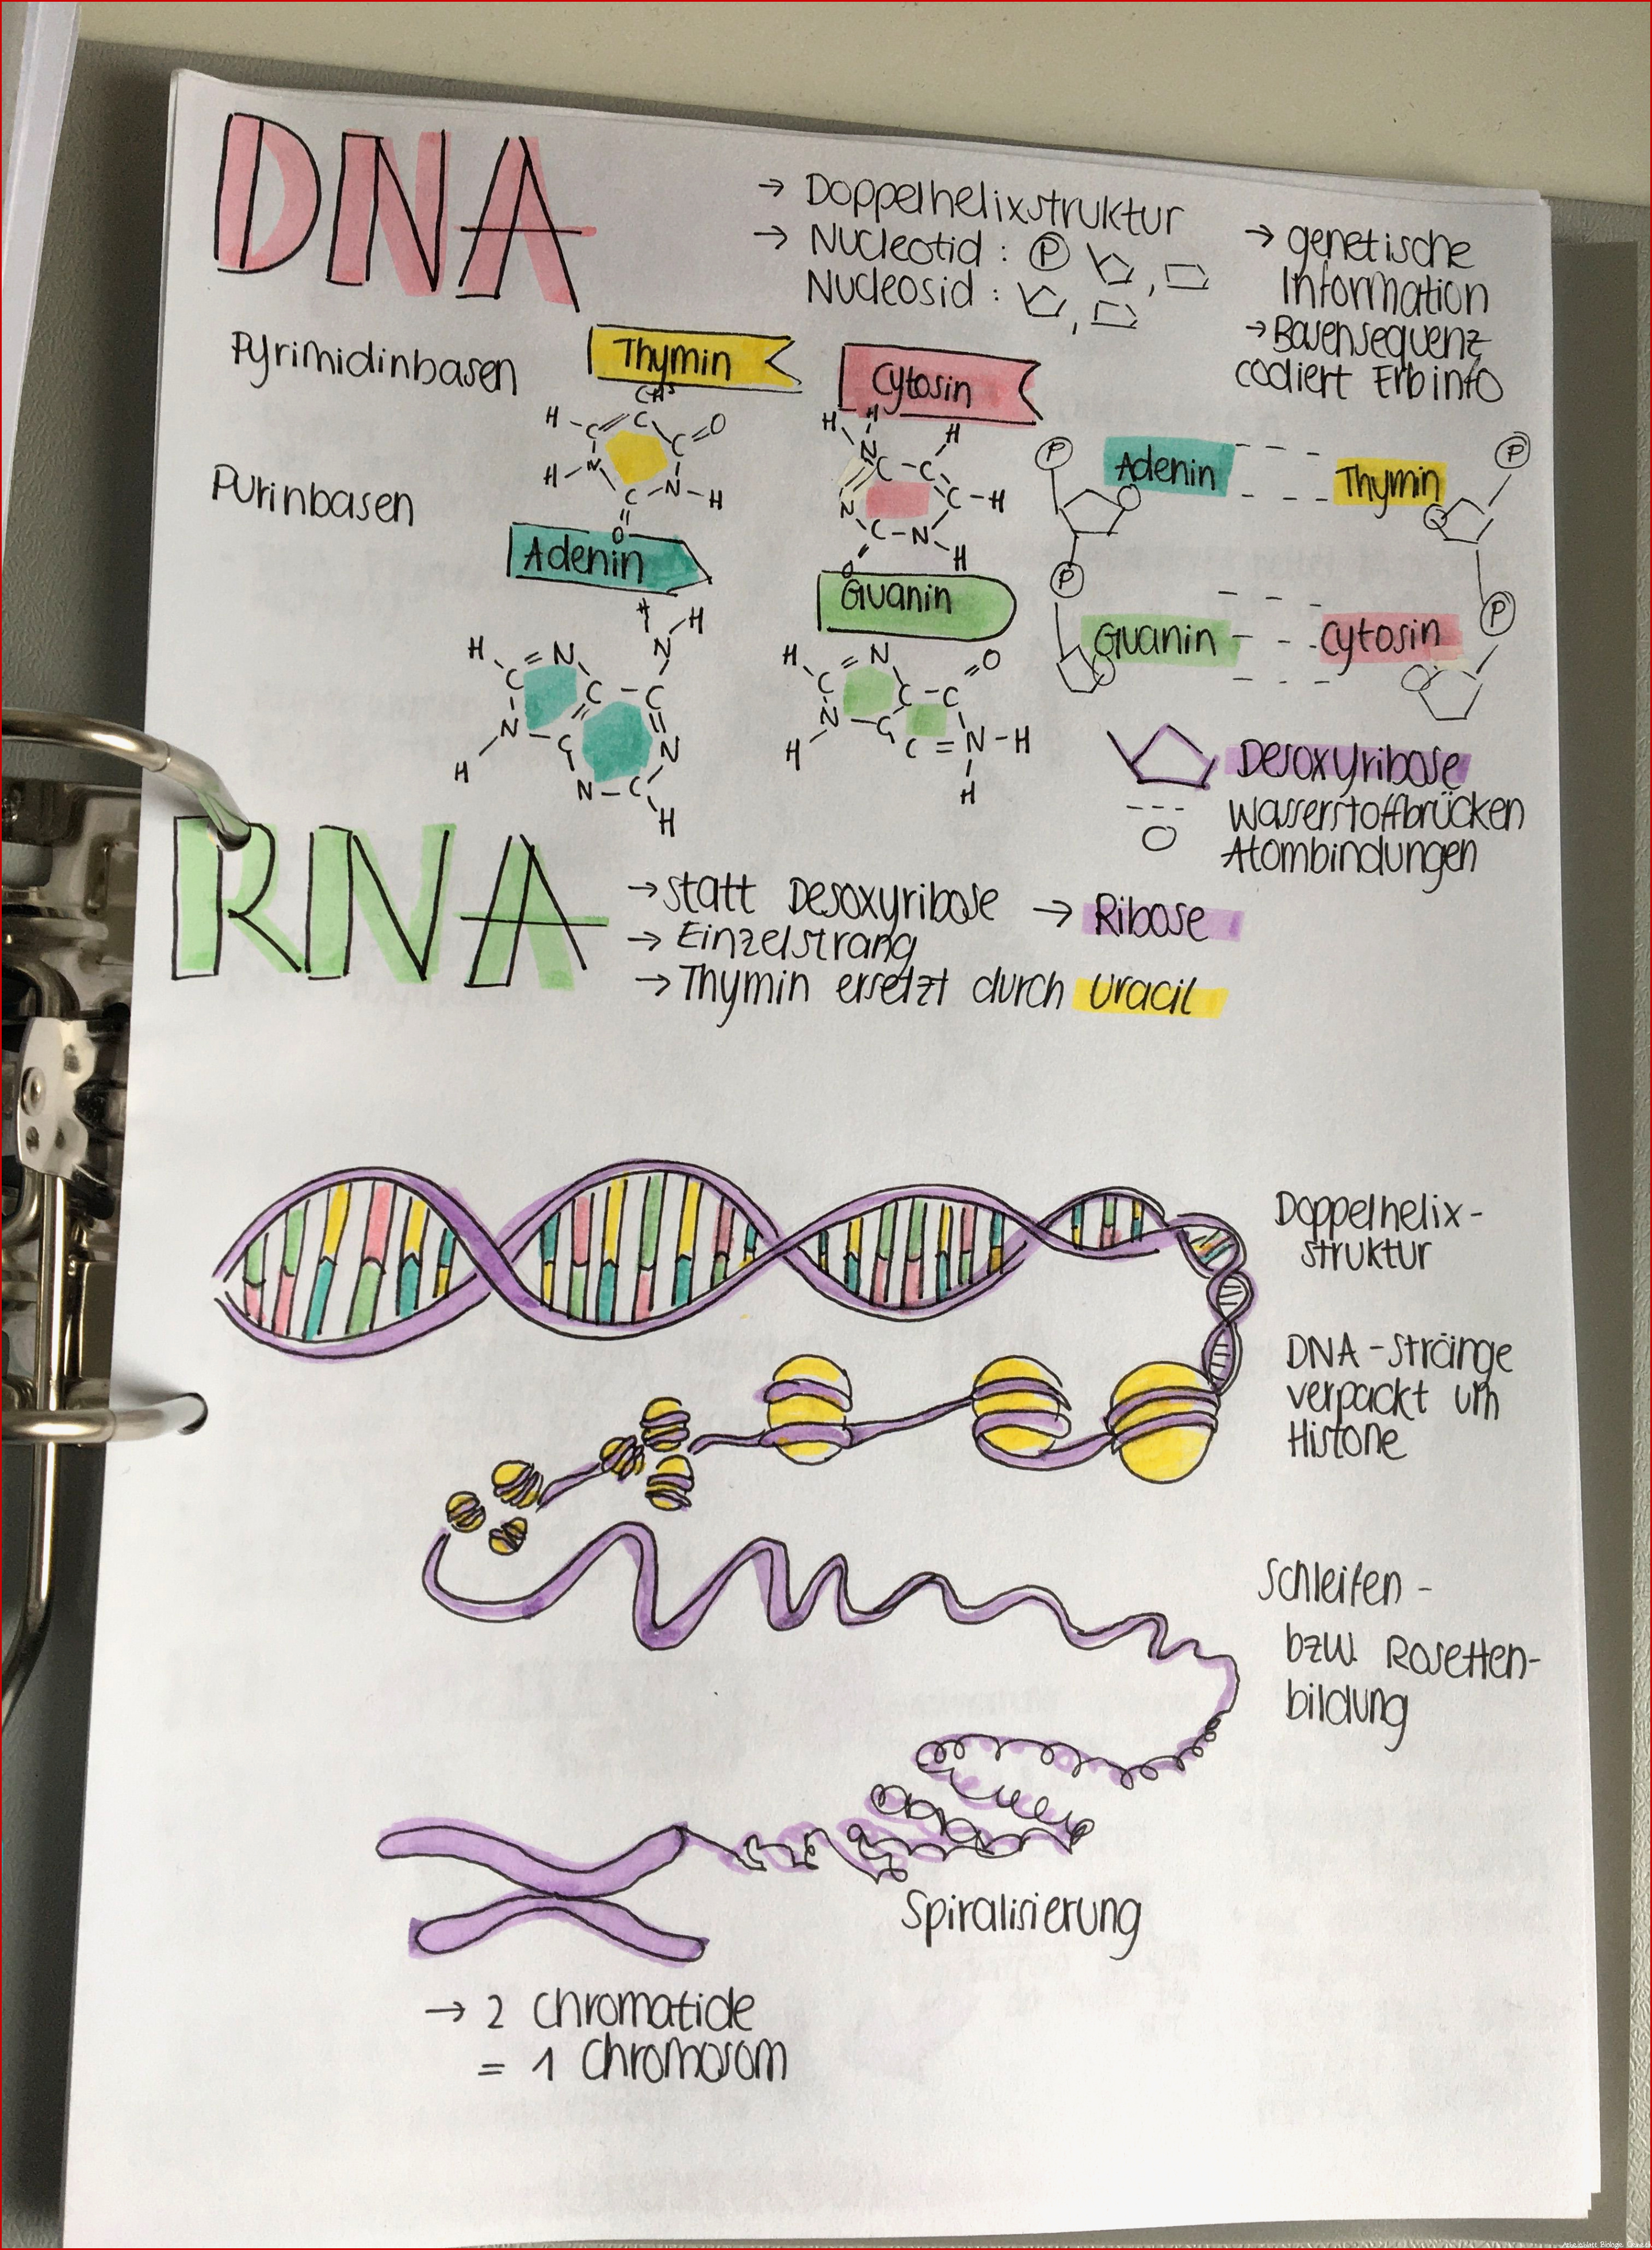 DNA
→ Doppelhelixstruktur
→ Nucleotid : P , 
Nucleosid : , 
→ genetische
Information
→ Basensequenz
codiert Erbinfo
Pyrimidinbasen
Thymin
Cytosin
CH³
H - C = C C = O
H - N C - N - H
O
H H
N H
C - C
N C - H
C - N - H
O
Purinbasen
Adenin
Guanin
H
N - H
H C = N
C C - C
N - C N
H N - C
H
H C = N O
C C - C
N - C N - H
H C = N
H
P Adenin - - - Thymin P
P P
Guanin - - - Cytosin
Desoxyribose
--- Wasserstoffbrücken
O Atombindungen
RNA
→ statt Desoxyribose → Ribose
→ Einzelstrang
→ Thymin ersetzt durch Uracil
Doppelhelix-
struktur
DNA-Stränge
verpackt um
Histone
Schleifen-
bzw. Rosetten-
bildung
Spiralisierung
→ 2 Chromatide
= 1 Chromosom